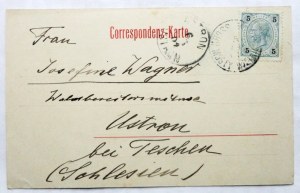 Correspondenz-Karte
5 5
5 5
Frau
Josefine Wagner
Ustron
bei Teschen
(Schlesien)